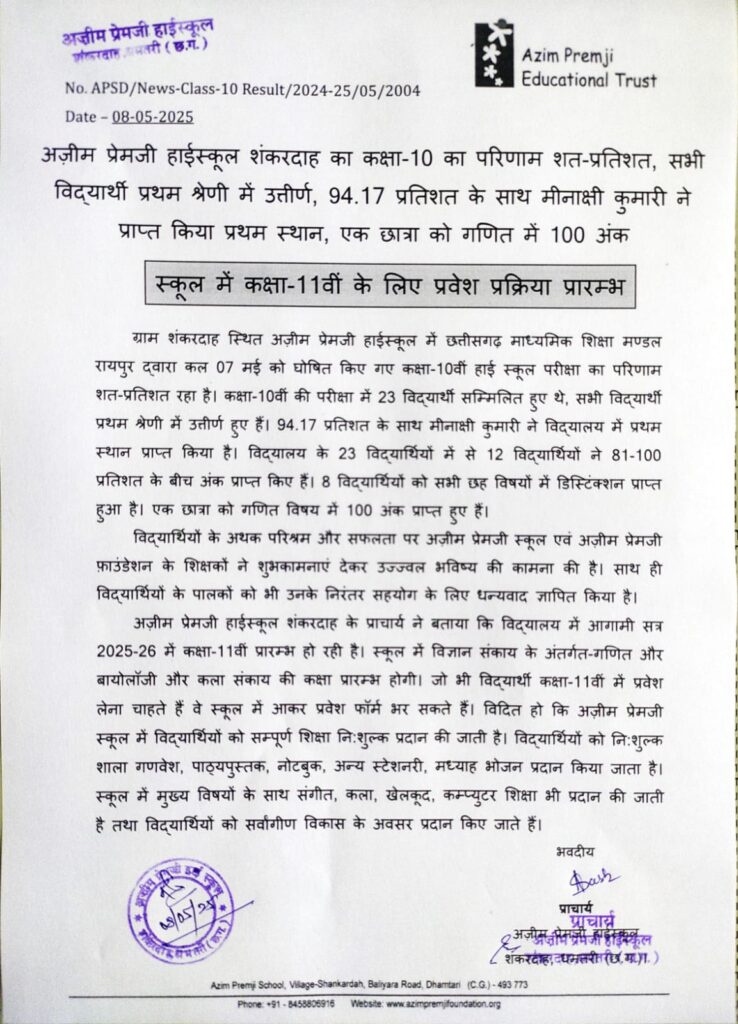 अज़ीम प्रेमजी हाईस्कूल
शंकरदाह, धमतरी (छ.ग.)
Azim Premji
Educational Trust
No. APSD/News-Class-10 Result/2024-25/05/2004
Date – 08-05-2025
अज़ीम प्रेमजी हाईस्कूल शंकरदाह का कक्षा-10 का परिणाम शत-प्रतिशत, सभी
विद्यार्थी प्रथम श्रेणी में उत्तीर्ण, 94.17 प्रतिशत के साथ मीनाक्षी कुमारी ने
प्राप्त किया प्रथम स्थान, एक छात्रा को गणित में 100 अंक
स्कूल में कक्षा-11वीं के लिए प्रवेश प्रक्रिया प्रारम्भ
ग्राम शंकरदाह स्थित अज़ीम प्रेमजी हाईस्कूल में छत्तीसगढ़ माध्यमिक शिक्षा मण्डल
रायपुर द्वारा कल 07 मई को घोषित किए गए कक्षा-10वीं हाई स्कूल परीक्षा का परिणाम
शत-प्रतिशत रहा है। कक्षा-10वीं की परीक्षा में 23 विद्यार्थी सम्मिलित हुए थे, सभी विद्यार्थी
प्रथम श्रेणी में उत्तीर्ण हुए हैं। 94.17 प्रतिशत के साथ मीनाक्षी कुमारी ने विद्यालय में प्रथम
स्थान प्राप्त किया है। विद्यालय के 23 विद्यार्थियों में से 12 विद्यार्थियों ने 81-100
प्रतिशत के बीच अंक प्राप्त किए हैं। 8 विद्यार्थियों को सभी छह विषयों में डिस्टिंक्शन प्राप्त
हुआ है। एक छात्रा को गणित विषय में 100 अंक प्राप्त हुए हैं।
विद्यार्थियों के अथक परिश्रम और सफलता पर अज़ीम प्रेमजी स्कूल एवं अज़ीम प्रेमजी
फ़ाउंडेशन के शिक्षकों ने शुभकामनाएं देकर उज्ज्वल भविष्य की कामना की है। साथ ही
विद्यार्थियों के पालकों को भी उनके निरंतर सहयोग के लिए धन्यवाद ज्ञापित किया है।
अज़ीम प्रेमजी हाईस्कूल शंकरदाह के प्राचार्य ने बताया कि विद्यालय में आगामी सत्र
2025-26 में कक्षा-11वीं प्रारम्भ हो रही है। स्कूल में विज्ञान संकाय के अंतर्गत-गणित और
बायोलॉजी और कला संकाय की कक्षा प्रारम्भ होगी। जो भी विद्यार्थी कक्षा-11वीं में प्रवेश
लेना चाहते हैं वे स्कूल में आकर प्रवेश फॉर्म भर सकते हैं। विदित हो कि अज़ीम प्रेमजी
स्कूल में विद्यार्थियों को सम्पूर्ण शिक्षा नि:शुल्क प्रदान की जाती है। विद्यार्थियों को नि:शुल्क
शाला गणवेश, पाठ्यपुस्तक, नोटबुक, अन्य स्टेशनरी, मध्याह भोजन प्रदान किया जाता है।
स्कूल में मुख्य विषयों के साथ संगीत, कला, खेलकूद, कम्प्युटर शिक्षा भी प्रदान की जाती
है तथा विद्यार्थियों को सर्वांगीण विकास के अवसर प्रदान किए जाते हैं।
भवदीय
प्राचार्य
प्राचार्य
अज़ीम प्रेमजी हाईस्कूल
अज़ीम प्रेमजी हाईस्कूल
शंकरदाह, धमतरी (छ.ग.)
अज़ीम प्रेमजी हाई स्कूल
08/05/25
शंकरदाह धमतरी (छ.ग.)
Azim Premji School, Village-Shankardah, Baliyara Road, Dhamtari (C.G.) - 493 773
Phone: +91 - 8458806916 Website: www.azimpremjifoundation.org